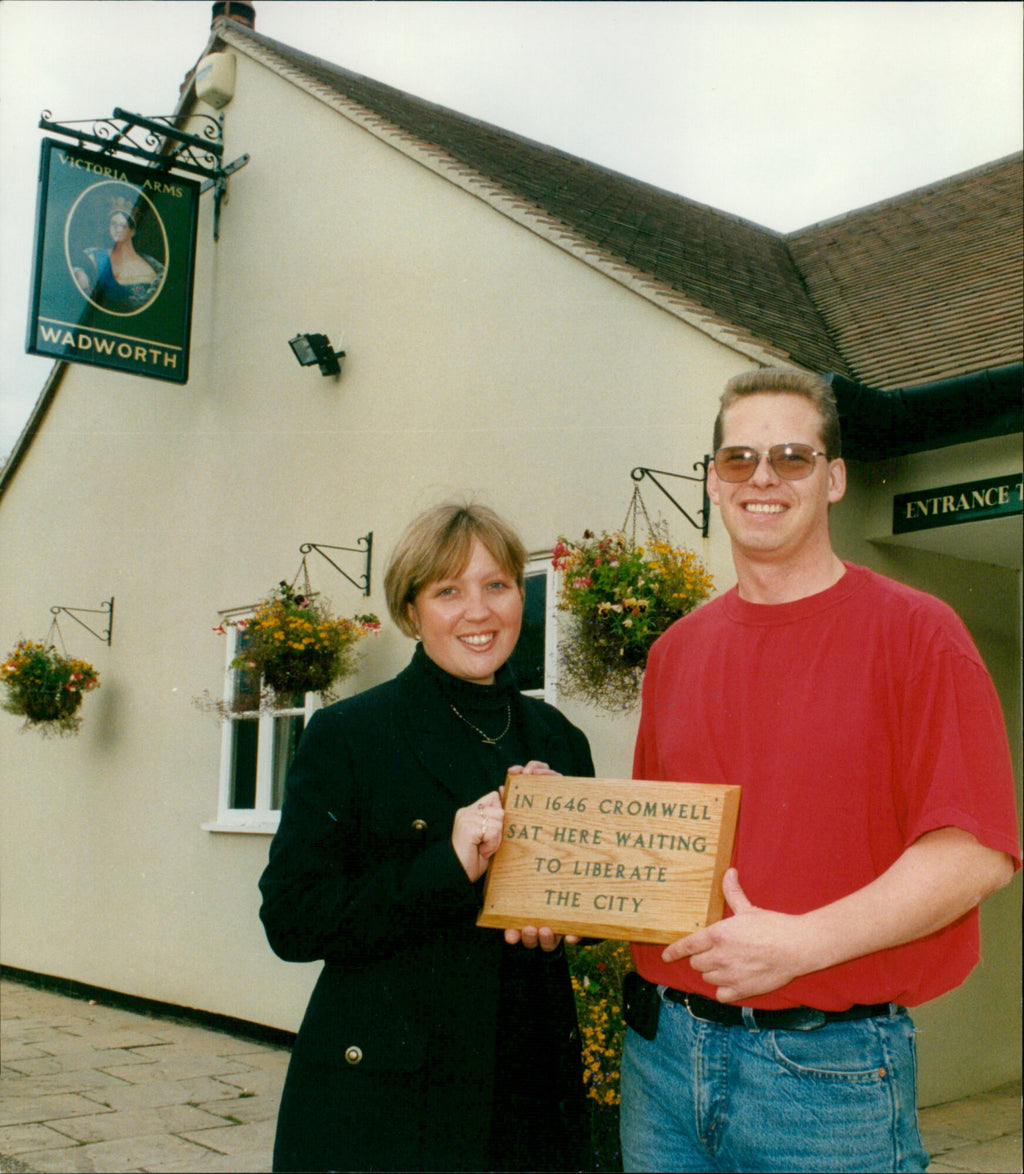 VICTORIA ARMS
WADWORTH
ENTRANCE T
IN 1646 CROMWELL
SAT HERE WAITING
TO LIBERATE
THE CITY